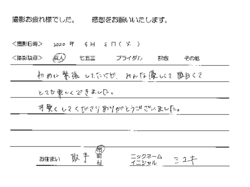 撮影お疲れ様でした。 感想をお願いいたします。
<撮影日時> 2020 年 5 月 6 日 ( )
<撮影種目> 成人 七五三 ブライダル 財産 その他
初めは緊張してたけど、みんな優しくて面白くて
とても楽しくできました。
可愛くしてくださりありがとうございました。
お住まい 取手 市 ニックネーム イニシャル ミユキ